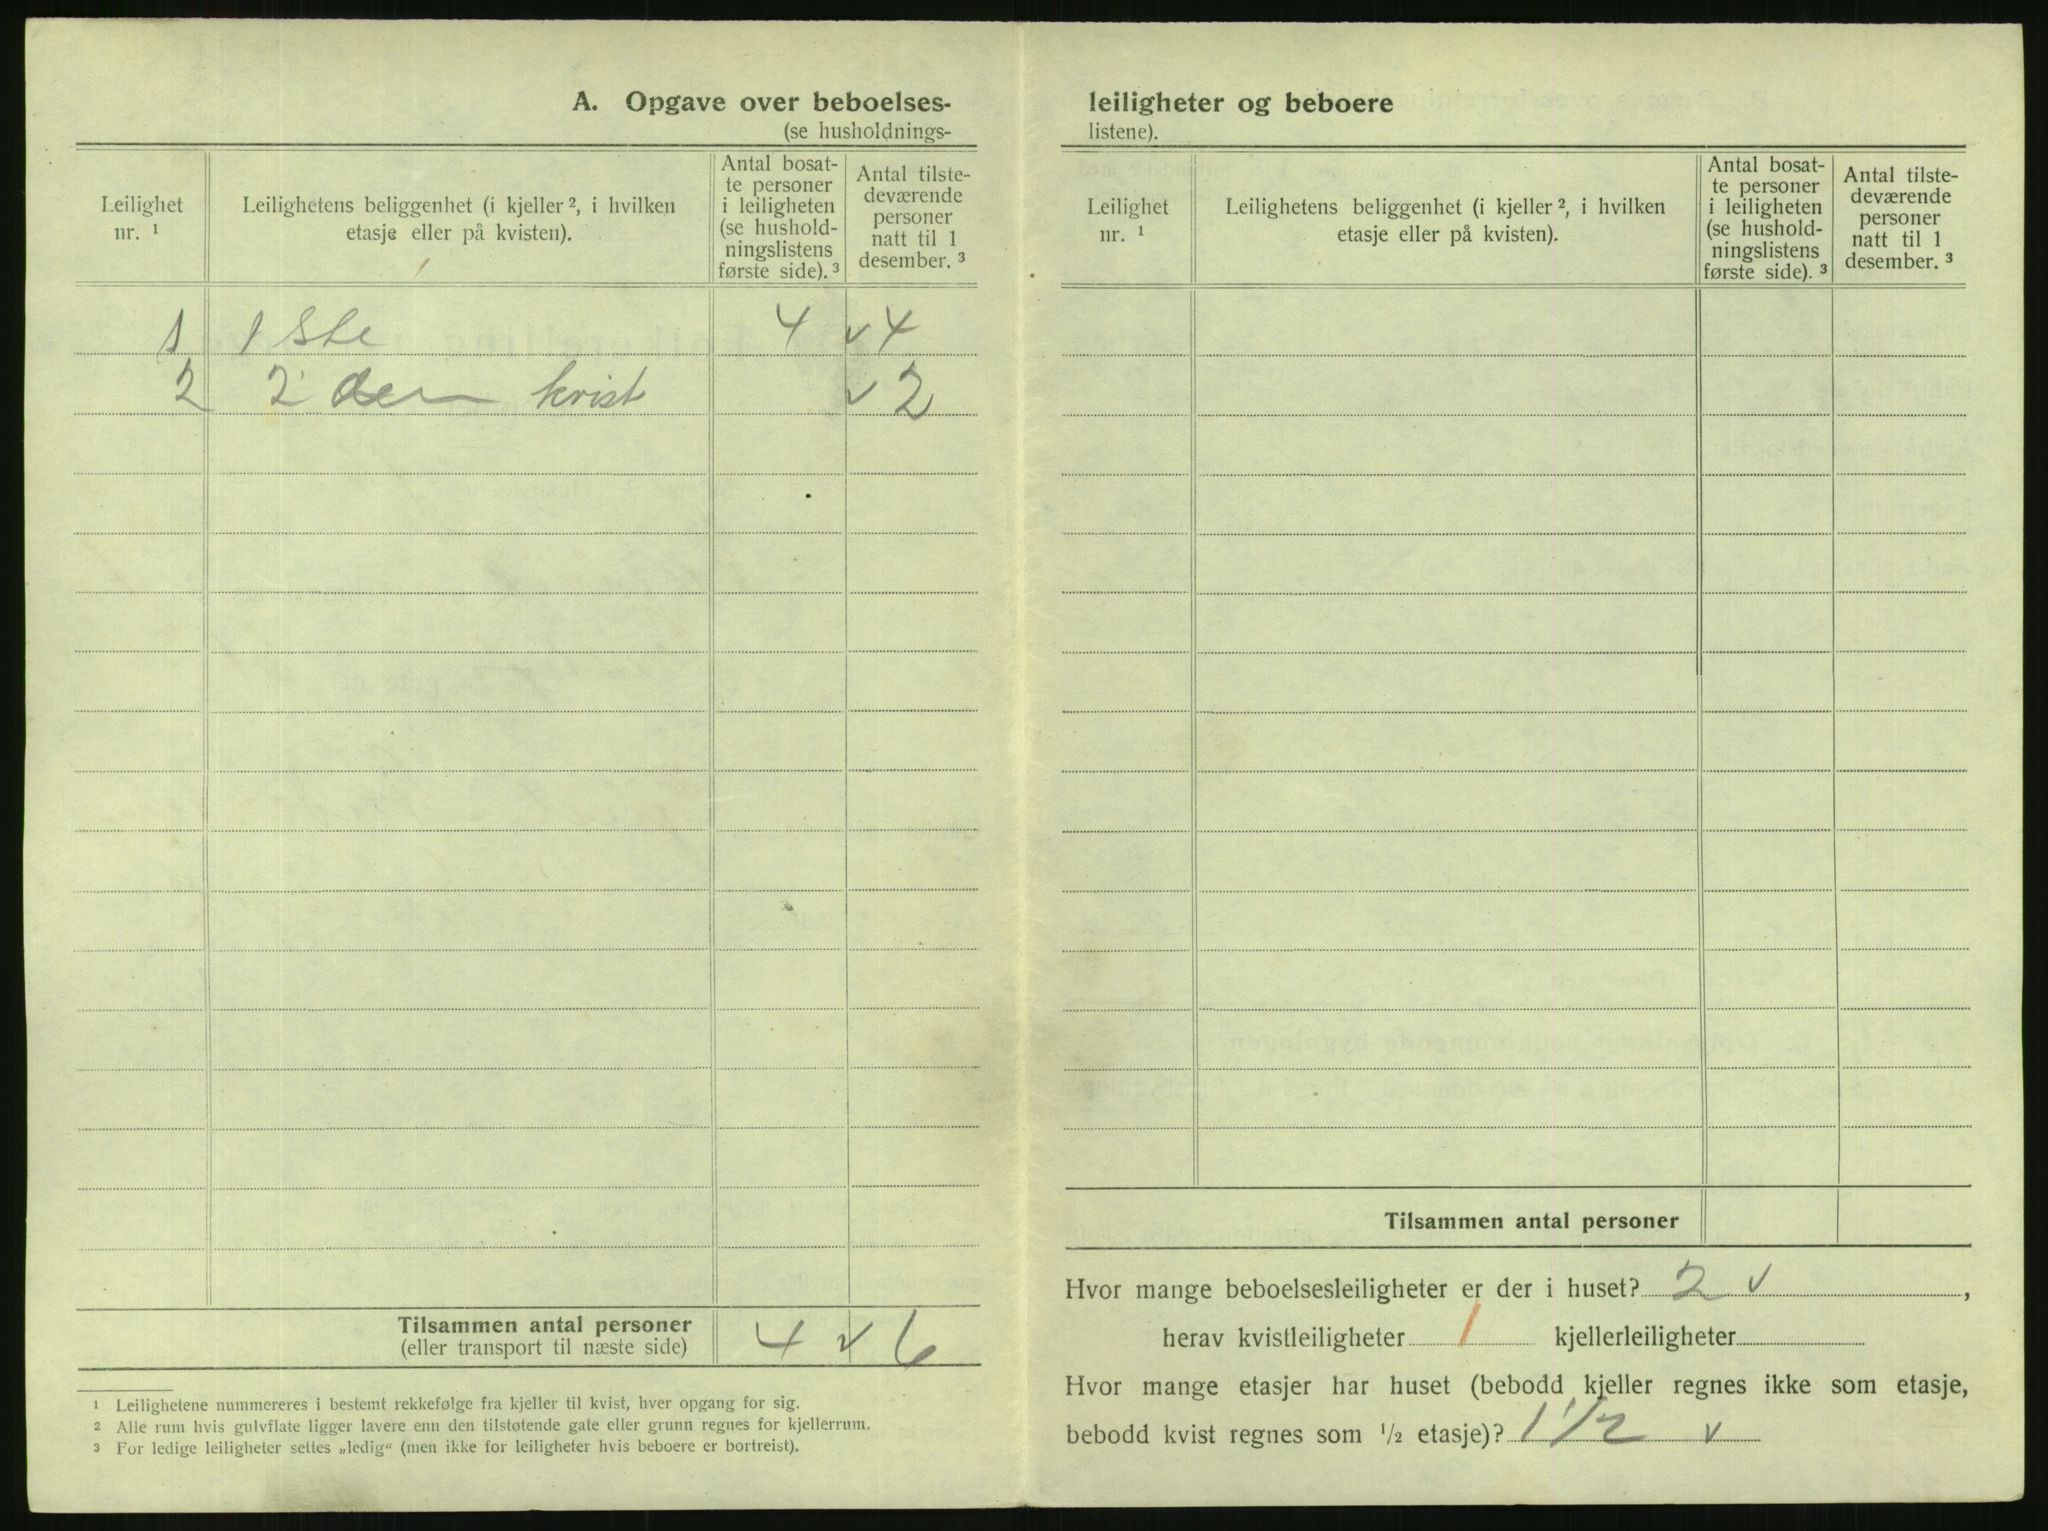 A. Opgave over beboelses-
(se husholdnings-
Leilighet nr. ¹
Leilighetens beliggenhet (i kjeller ², i hvilken etasje eller på kvisten).
Antal bosat-
te personer
i leiligheten
(se hushold-
ningslistens
første side). ³
Antal tilste-
deværende
personer
natt til 1
desember. ³
1 1ste 4 v 4
2 2den kvist v 2
Tilsammen antal personer 4 v 6
(eller transport til næste side)
¹ Leilighetene nummereres i bestemt rekkefølge fra kjeller til kvist, hver opgang for sig.
² Alle rum hvis gulvflate ligger lavere enn den tilstøtende gate eller grunn regnes for kjellerrum.
³ For ledige leiligheter settes „ledig“ (men ikke for leiligheter hvis beboere er bortreist).
leiligheter og beboere
listene).
Leilighet nr. ¹
Leilighetens beliggenhet (i kjeller ², i hvilken etasje eller på kvisten).
Antal bosat-
te personer
i leiligheten
(se hushold-
ningslistens
første side). ³
Antal tilste-
deværende
personer
natt til 1
desember. ³
Tilsammen antal personer
Hvor mange beboelsesleiligheter er der i huset? 2 v ,
herav kvistleiligheter 1 kjellerleiligheter
Hvor mange etasjer har huset (bebodd kjeller regnes ikke som etasje,
bebodd kvist regnes som ½ etasje)? 1 1/2 v